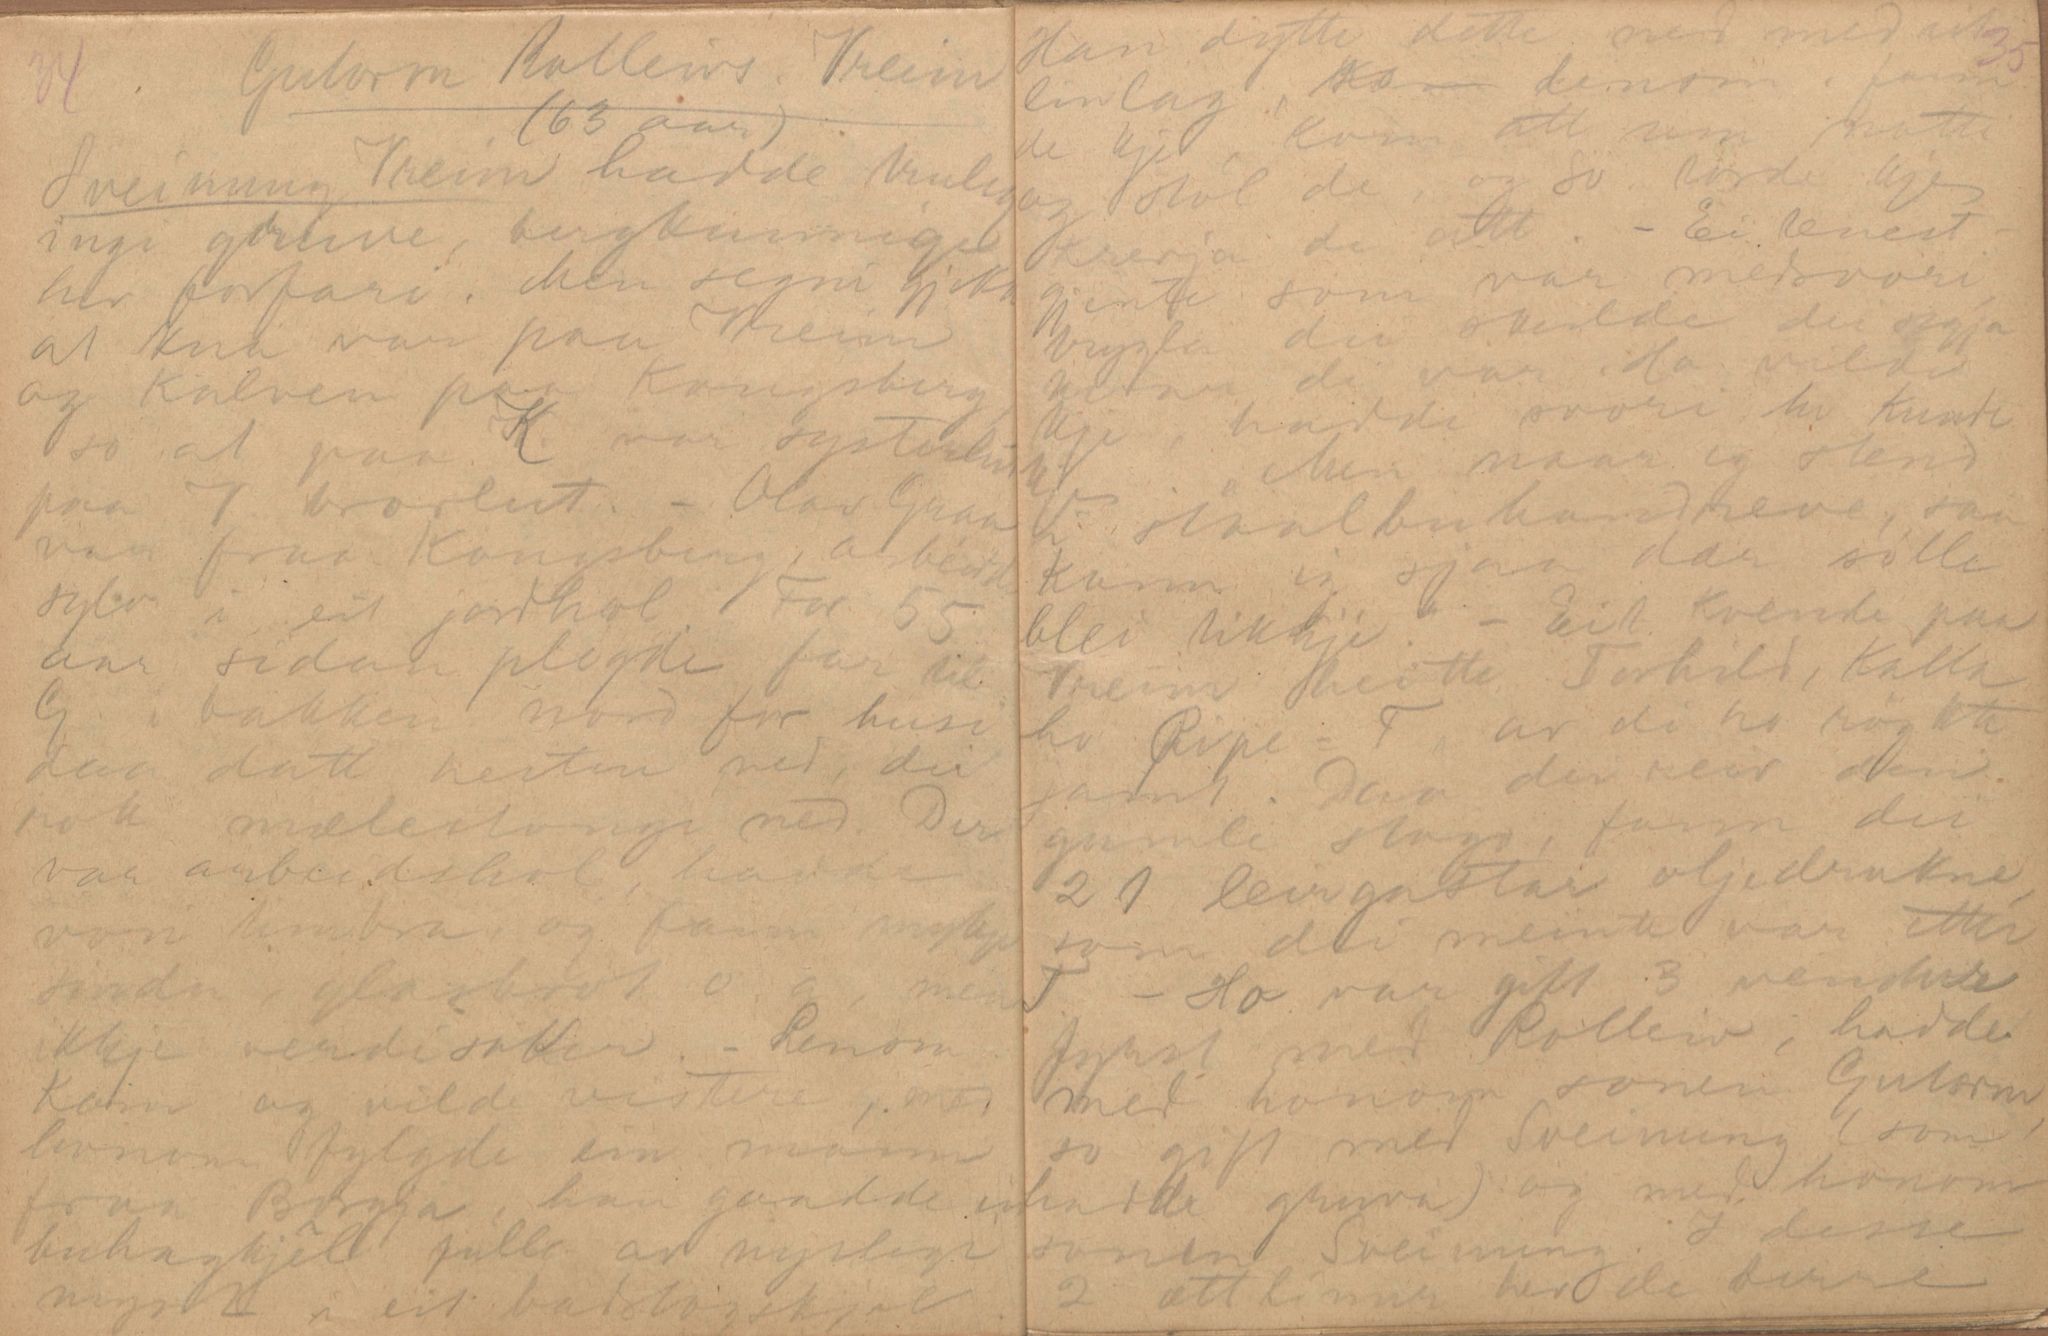 34
Gutorm Rolleivs. Vreim
(63 aar)
Sveinung Vreim hadde truleg
ingi gruve, bergkunnige
her forfari. Men segni gjekk
at kua var paa Vreim
og Kalven paa Kongsberg
so at paa K var systerlut
paa V brorlut. - Olav Graa
var fraa Kongsberg, arbeidde
sylv i eit jordhol. For 55
aar sidan pløgde far til
G i bakken nord for husi
daa datt hesten ned, dei
rakk mælestongi ned. Der
var arbeidshol, hadde
vori timbra, og fann mykje
sinder, glasbrot o. a, men
ikkje verdisaker. - Lensm.
kom og vilde vistere, med
honom fylgde ein mann
fraa Borgja, han gaadde ei
fulle av nyslegi
mynt i eit badstogskjol
35
Han dytte dette ned med eit
linlag, denom, fann
de kje, kom att um natti
og stol de, og so torde kje
krevja de att. - Ei tenest-
gjente som var medsvori,
trygla dei skulde dei segja
det var. Ho vilde
kje, hadde svori ho kunde
kje. "Men naar eg stend
i staalbuhandreve, saa
kann eg sjaa dær sølle
blei tikkje." - Eit kvende paa
Vreim heitte Torhild, kalla
ho Pipe-T, av di ho røykte
jamt. Daa dei reiv den
gamle stogo, fann dei
21 leirgastar oljedrukne,
som dei meinte var etter
T - Ho var gift 3 vendur
fyrst med Rolleiv, hadde
med honom sonen Gutorm,
so gift med Sveinung (som
hadde gruva) og med honom
sonen Sveinung. I desse
2 ættlinur her de